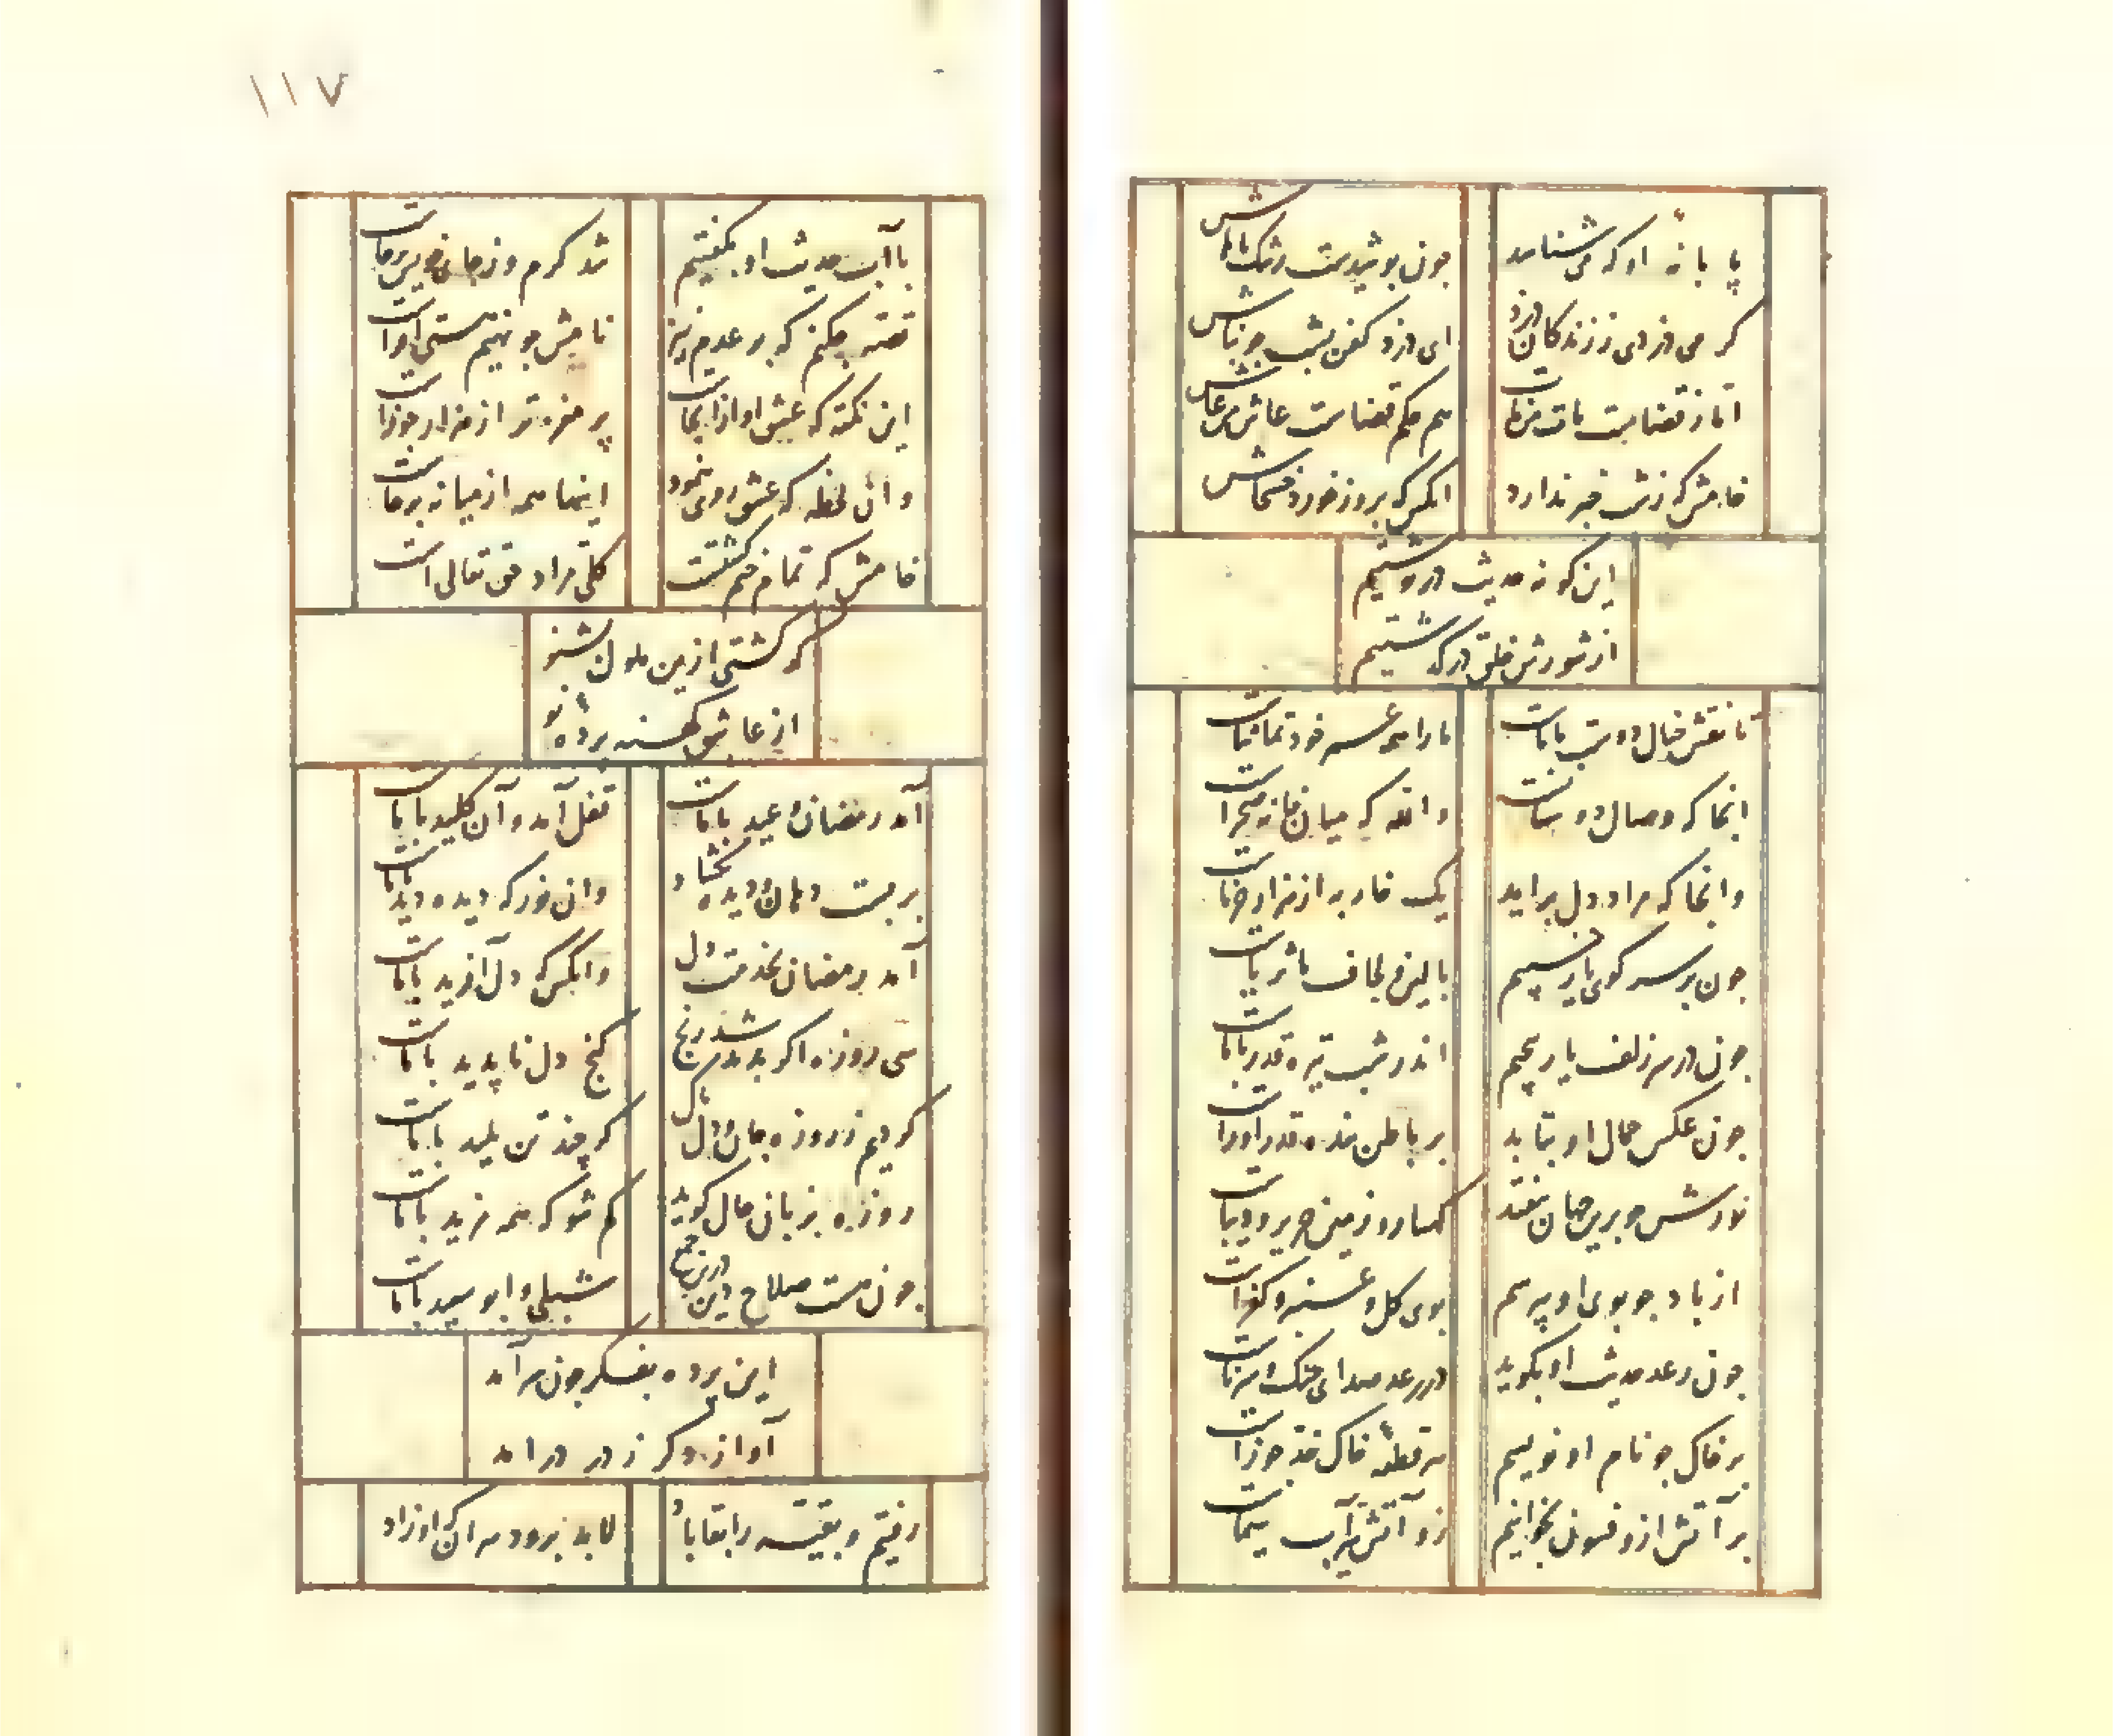 که می شناسد جون
کر می دزدی ز زندکان دزد ای دزد کفن بشب جو نباش
اما ز قضاست مات من مات هم حکم قضاست عاش من عاش
خامش که ز شب خبر ندارد انکس که بروز خورد خشخاش
این کونه حدیث درنوشتیم
از شورش خلق درکذشتیم
تا نقش خیال دوست باماست مارا همه عمر خود تماشاست
انجا که وصال دوستانست والله که میان خانه صحراست
وانجا که مراد دل براید یک خار به از هزار خرماست
جون بر سر کوی یار خسبیم بالین و لحاف ما ثریاست
جون در سر زلف یار پیجیم اندر شب تیره قدر باماست
جون عکس جمال او بتابد
نورش جو برین جهان بیفتد کهسار و زمین حریر و دیباست
از باد جو بوی او بپرسیم
جون رعد حدیث او بکوید در رعد صدای جنک و سرناست
بر خاک جو نام او نویسیم هر قطعهٔ خاک
بر آتش ازو فسون بخوانیم زو آتش تیز آب سیماست
۱۱۷
با آب حدیث او بکفتیم شد کرم و ز جای خویش برخاست
قصه جکنم که بر عدم نیز نامش جو بریم هستی افزاست
این نکته که عشق او از انجاست پر مغزتر از هزار جوزاست
وان لحظه که عشق روی بنمود اینها همه از میانه برخاست
خامش که تمام ختم کشتست کلی مراد حق تعالی است
کر کشتی ازین ملول بشنو
از عاشق کهنه پردهٔ نو
آمد رمضان و عید باماست قفل آمد و آن کلید باماست
بربست دهان و دیده بکشاد وان نور که دیده دید باماست
آمد رمضان بخدمت دل وانکس که دل آفرید باماست
سی روزه اکر بدید شد رنج کنج دل ناپدید باماست
کردیم ز روزه جان و دل پاک کر جند تن پلید باماست
روزه بزبان حال کوید کم شو که همه مزید باماست
جون هست صلاح دین درین جمع شبلی و ابو سعید باماست
این پرده بفکر جون سرآمد
آواز دکر ز در درامد
رفتیم و بقیه را بقا باد لابد برود هر ان که او زاد